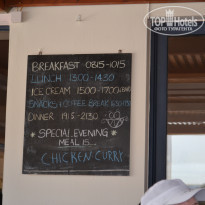 TopHotels
ФОТО ТУРАГЕНТА
BREAKFAST 0815-1015
LUNCH 1300-1430
ICE CREAM 1500-1700
SNACKS + COFFEE BREAK
DINNER 1915-2130
*SPECIAL EVENING*
MEAL IS...
CHICKEN CURRY